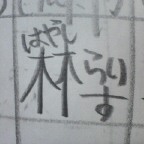 はやし
林らりす